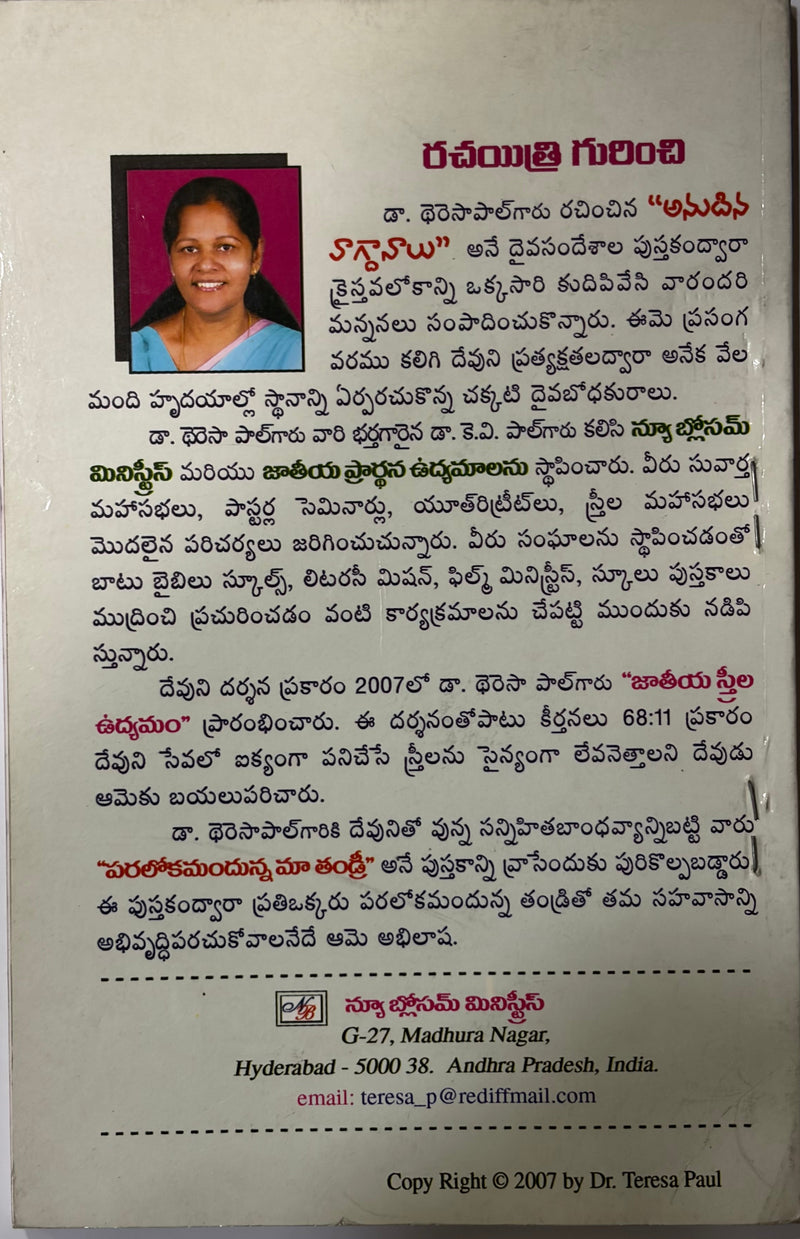 రచయిత్రి గురించి
డా. థెరెసాపాల్‌గారు రచించిన “అనుదిన
వాగ్దానాలు” అనే దైవసందేశాల పుస్తకంద్వారా
క్రైస్తవలోకాన్ని ఒక్కసారి కుదిపివేసి వారందరి
మన్ననలు సంపాదించుకొన్నారు. ఈమె ప్రసంగ
వరము కలిగి దేవుని ప్రత్యక్షతలద్వారా అనేక వేల
మంది హృదయాల్లో స్థానాన్ని ఏర్పరచుకొన్న చక్కటి దైవబోధకురాలు.
డా. థెరెసా పాల్‌గారు వారి భర్తగారైన డా. కె.వి. పాల్‌గారు కలిసి న్యూ బ్లోసమ్
మినిస్ట్రీస్ మరియు జాతీయ ప్రార్థన ఉద్యమాలను స్థాపించారు. వీరు సువార్త
మహాసభలు, పాస్టర్ల సెమినార్లు, యూత్‌రిట్రీట్‌లు, స్త్రీల మహాసభలు
మొదలైన పరిచర్యలు జరిగించుచున్నారు. వీరు సంఘాలను స్థాపించడంతో
బాటు బైబిలు స్కూల్స్, లిటరసీ మిషన్, ఫిల్మ్ మినిస్ట్రీస్, స్కూలు పుస్తకాలు
ముద్రించి ప్రచురించడం వంటి కార్యక్రమాలను చేపట్టి ముందుకు నడిపి
స్తున్నారు.
దేవుని దర్శన ప్రకారం 2007లో డా. థెరెసా పాల్‌గారు “జాతీయ స్త్రీల
ఉద్యమం” ప్రారంభించారు. ఈ దర్శనంతోపాటు కీర్తనలు 68:11 ప్రకారం
దేవుని సేవలో ఐక్యంగా పనిచేసే స్త్రీలను సైన్యంగా లేవనెత్తాలని దేవుడు
ఆమెకు బయలుపరిచారు.
డా. థెరెసాపాల్‌గారికి దేవునితో వున్న సన్నిహితబాంధవ్యాన్నిబట్టి వారు
“పరలోకమందున్న మా తండ్రీ” అనే పుస్తకాన్ని వ్రాసేందుకు పురికొల్పబడ్డారు.
ఈ పుస్తకంద్వారా ప్రతిఒక్కరు పరలోకమందున్న తండ్రితో తమ సహవాసాన్ని
అభివృద్ధిపరచుకోవాలనేదే ఆమె అభిలాష.
NB న్యూ బ్లోసమ్ మినిస్ట్రీస్
G-27, Madhura Nagar,
Hyderabad - 5000 38. Andhra Pradesh, India.
email: teresa_p@rediffmail.com
Copy Right © 2007 by Dr. Teresa Paul